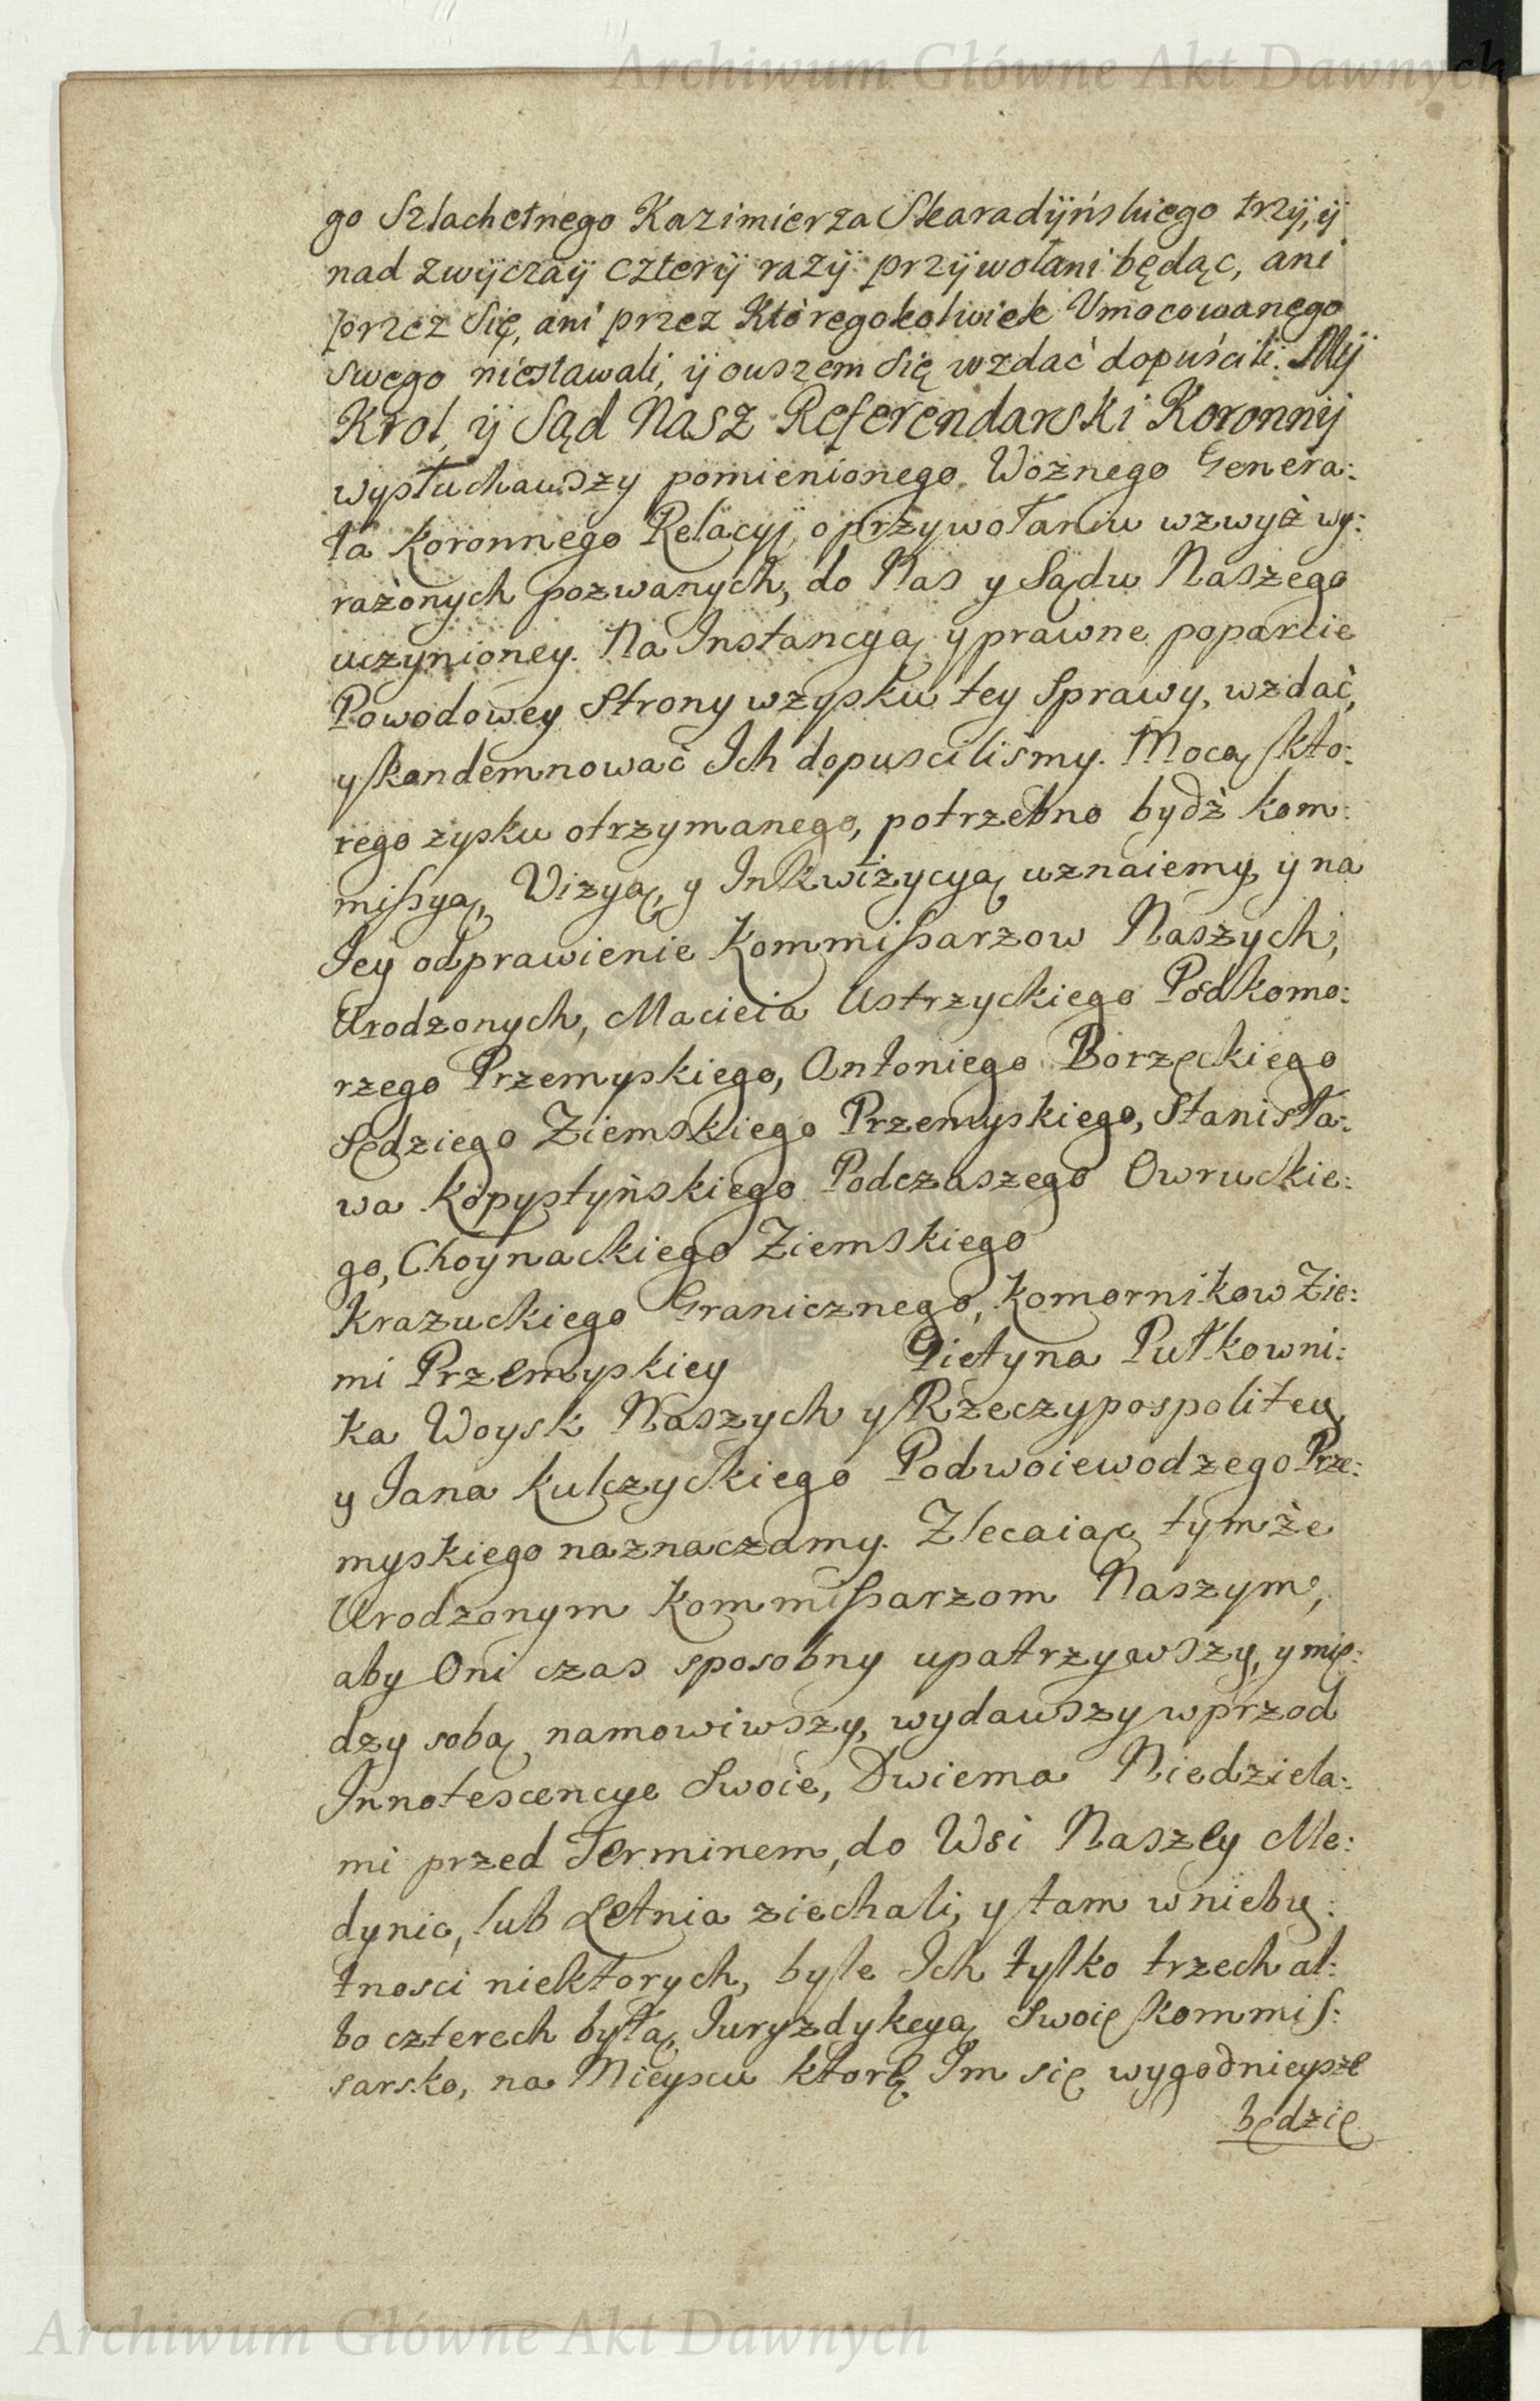 Archiwum Główne Akt Dawnych
go Szlachetnego Kazimierza Skaradÿńskiego trzÿ, ÿ
nad zwÿczaÿ czterÿ razÿ przÿwołani będąc, ani
przez się, ani przez Któregokolwiek Umocowanego
swego niestawali, ÿ owszem się wzdać dopuścili. Mÿ
Krol, ÿ Sąd Nasz Referendarski Koronnÿ
wysłuchawszy pomienionego Woznego Genera:
ła Koronnego Relacyi, o przywołaniu wzwyż wy:
rażonych pozwanych, do Nas y Sądu Naszego
uczynioney. Na Instancyą y prawne poparcie
Powodowey Strony wzysku tey Sprawy, wzdać,
y skondemnować Ich dopuscilismy. Mocą kto:
rego zysku otrzymanego, potrzebno bydź kom:
missyą, Wizyą, y Inkwizycyą uznaiemy, y na
Iey odprawienie Kommissarzow Naszych,
Urodzonych, Macieia Ustrzyckiego Podkomo:
rzego Przemyskiego, Antoniego Borzęckiego
Sędziego Ziemskiego Przemyskiego, Stanisła:
wa Kopystyńskiego Podczaszego Owruckie:
go, Choynackiego Ziemskiego
Krazuckiego Granicznego, Komornikow Zie:
mi Przemyskiey Pietyna Pułkowni:
ka Woysk Naszych y Rzeczypospolitey
y Iana Kulczyckiego Podwoiewodzego Prze:
myskiego naznaczamy. Zlecaiąc tymże
Urodzonym Kommissarzom Naszym,
aby Oni czas sposobny upatrzywszy, y mię:
dzy sobą namowiwszy, wydawszy wprzod
Innotescencye Swoie, Dwiema Niedziela:
mi przed Terminem, do Wsi Naszey Me:
dynic, lub Letnia ziechali, y tam w nieby:
tnosci niektorych, byle Ich tylko trzech al:
bo czterech było, Iuryzdykcyą Swoię kommis:
sarską, na Mieyscu ktorę Im się wygodnieysze
będzie
Archiwum Główne Akt Dawnych